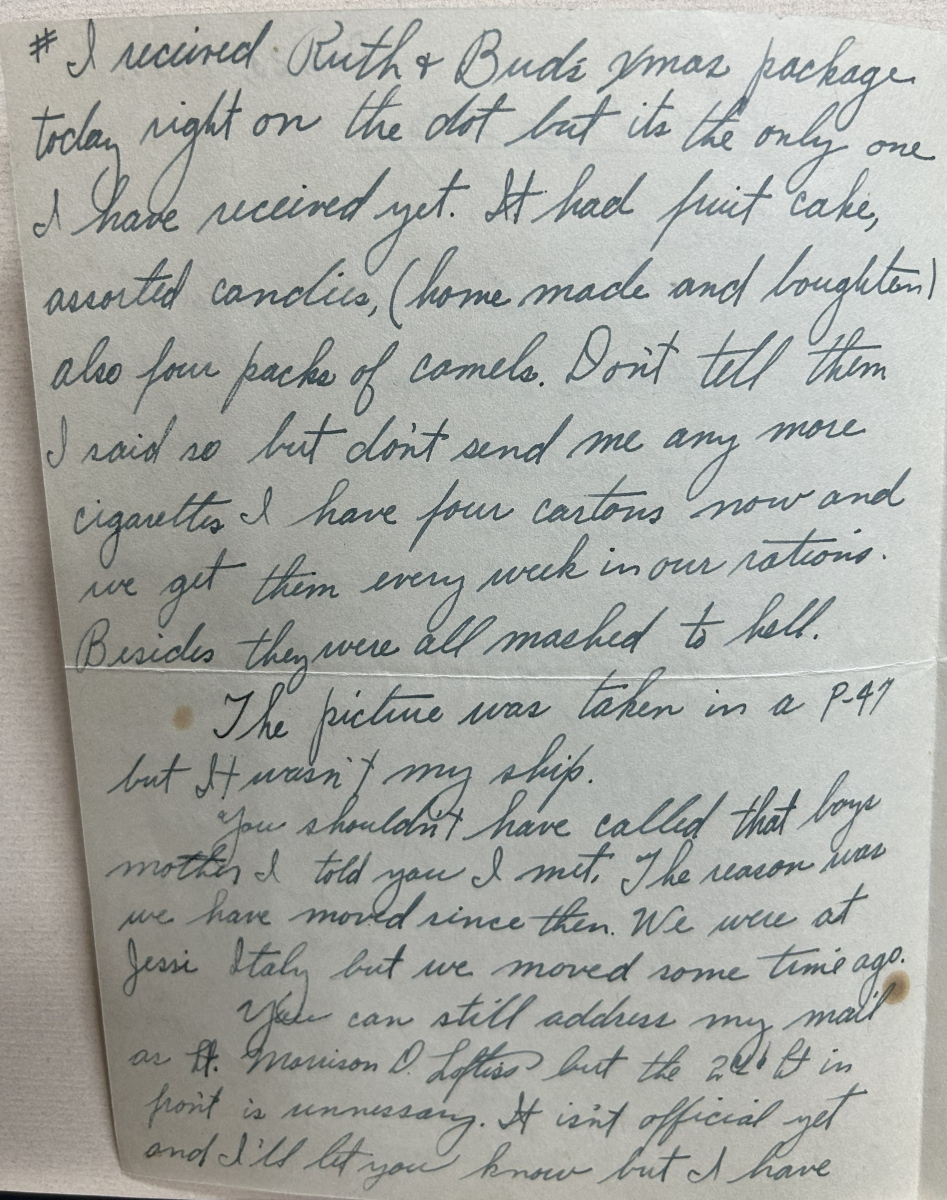 # I received Ruth & Bud's xmas package
today right on the dot but its the only one
I have received yet. It had fruit cake,
assorted candies, (home made and boughten)
also four packs of camels. Don't tell them
I said so but don't send me any more
cigarettes I have four cartons now and
we get them every week in our rations.
Besides they were all mashed to hell.
The picture was taken in a P-47
but It wasn't my ship.
You shouldn't have called that boys
mother I told you I met. The reason was
we have moved since then. We were at
Jessi Italy but we moved some time ago.
You can still address my mail
as Lt. Morrison O. Loftiss but the 2nd Lt in
front is unnessary. It isn't official yet
and I'll let you know but I have